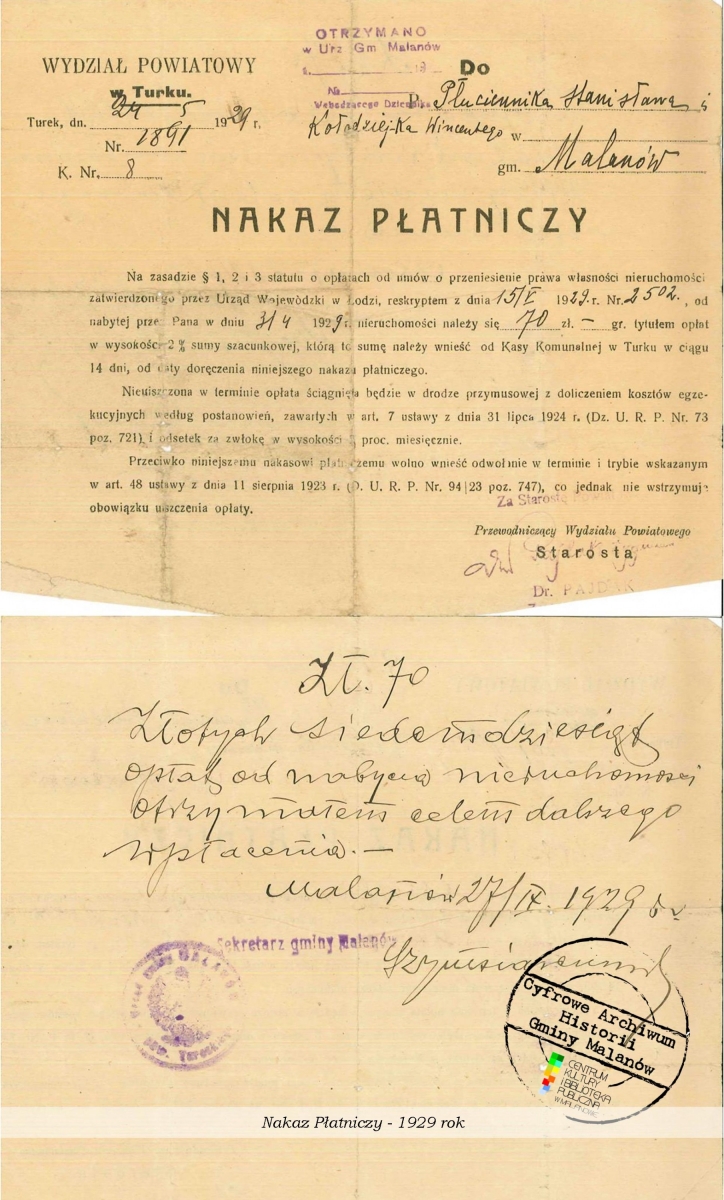 WYDZIAŁ POWIATOWY
w Turku.
Turek, dn. 24 5 1929 r,
Nr. 1891
K. Nr. 8
OTRZYMANO
w Urz Gm Malanów
Nr
Wchodzącego Dziennika
Do
P. Płuciennika Stanisława i
Kołodziejka Wincentego w
gm. Malanów
NAKAZ PŁATNICZY
Na zasadzie § 1, 2 i 3 statutu o opłatach od umów o przeniesienie prawa własności nieruchomości
zatwierdzonego przez Urząd Wojewòdzki w Łodzi, reskryptem z dnia 15/V 1929.r. Nr. 2502., od
nabytej przez Pana w dniu 3/4 1929 r, nieruchomości należy się 70 zł. — gr. tytułem opłat
w wysokości 2% sumy szacunkowej, którą to sumę należy wnieść od Kasy Komunalnej w Turku w ciągu
14 dni, od daty doręczenia niniejszego nakazu płatniczego.
Nieuiszczona w terminie opłata ściągnięta będzie w drodze przymusowej z doliczeniem kosztów egze-
kucyjnych według postanowień, zawartych w art. 7 ustawy z dnia 31 lipca 1924 r. (Dz. U. R. P. Nr. 73
poz. 721), i odsetek za zwłokę w wysokości proc. miesięcznie.
Przeciwko niniejszemu nakasowi płatniczemu wolno wnieść odwołanie w terminie i trybie wskazanym
w art. 48 ustawy z dnia 11 sierpnia 1923 r. (D. U. R. P. Nr. 94|23 poz. 747), co jednak nie wstrzymuje
obowiązku uiszczenia opłaty.
Za Starostę
Przewodniczący Wydziału Powiatowego
Starosta
Dr. PAJDAK
Zł. 70
Złotych siedemdziesiąt
opłaty od nabycia nieruchomości
otrzymałem celem dalszego
wpłacenia. —
Malanów 27/IX. 1929 r.
Sekretarz gminy Malanów
MALANÓW
pow. Tureckiego
Cyfrowe Archiwum
Historii
Gminy Malanów
CENTRUM
KULTURY
I BIBLIOTEKA
PUBLICZNA
W MALANOWIE
Nakaz Płatniczy - 1929 rok